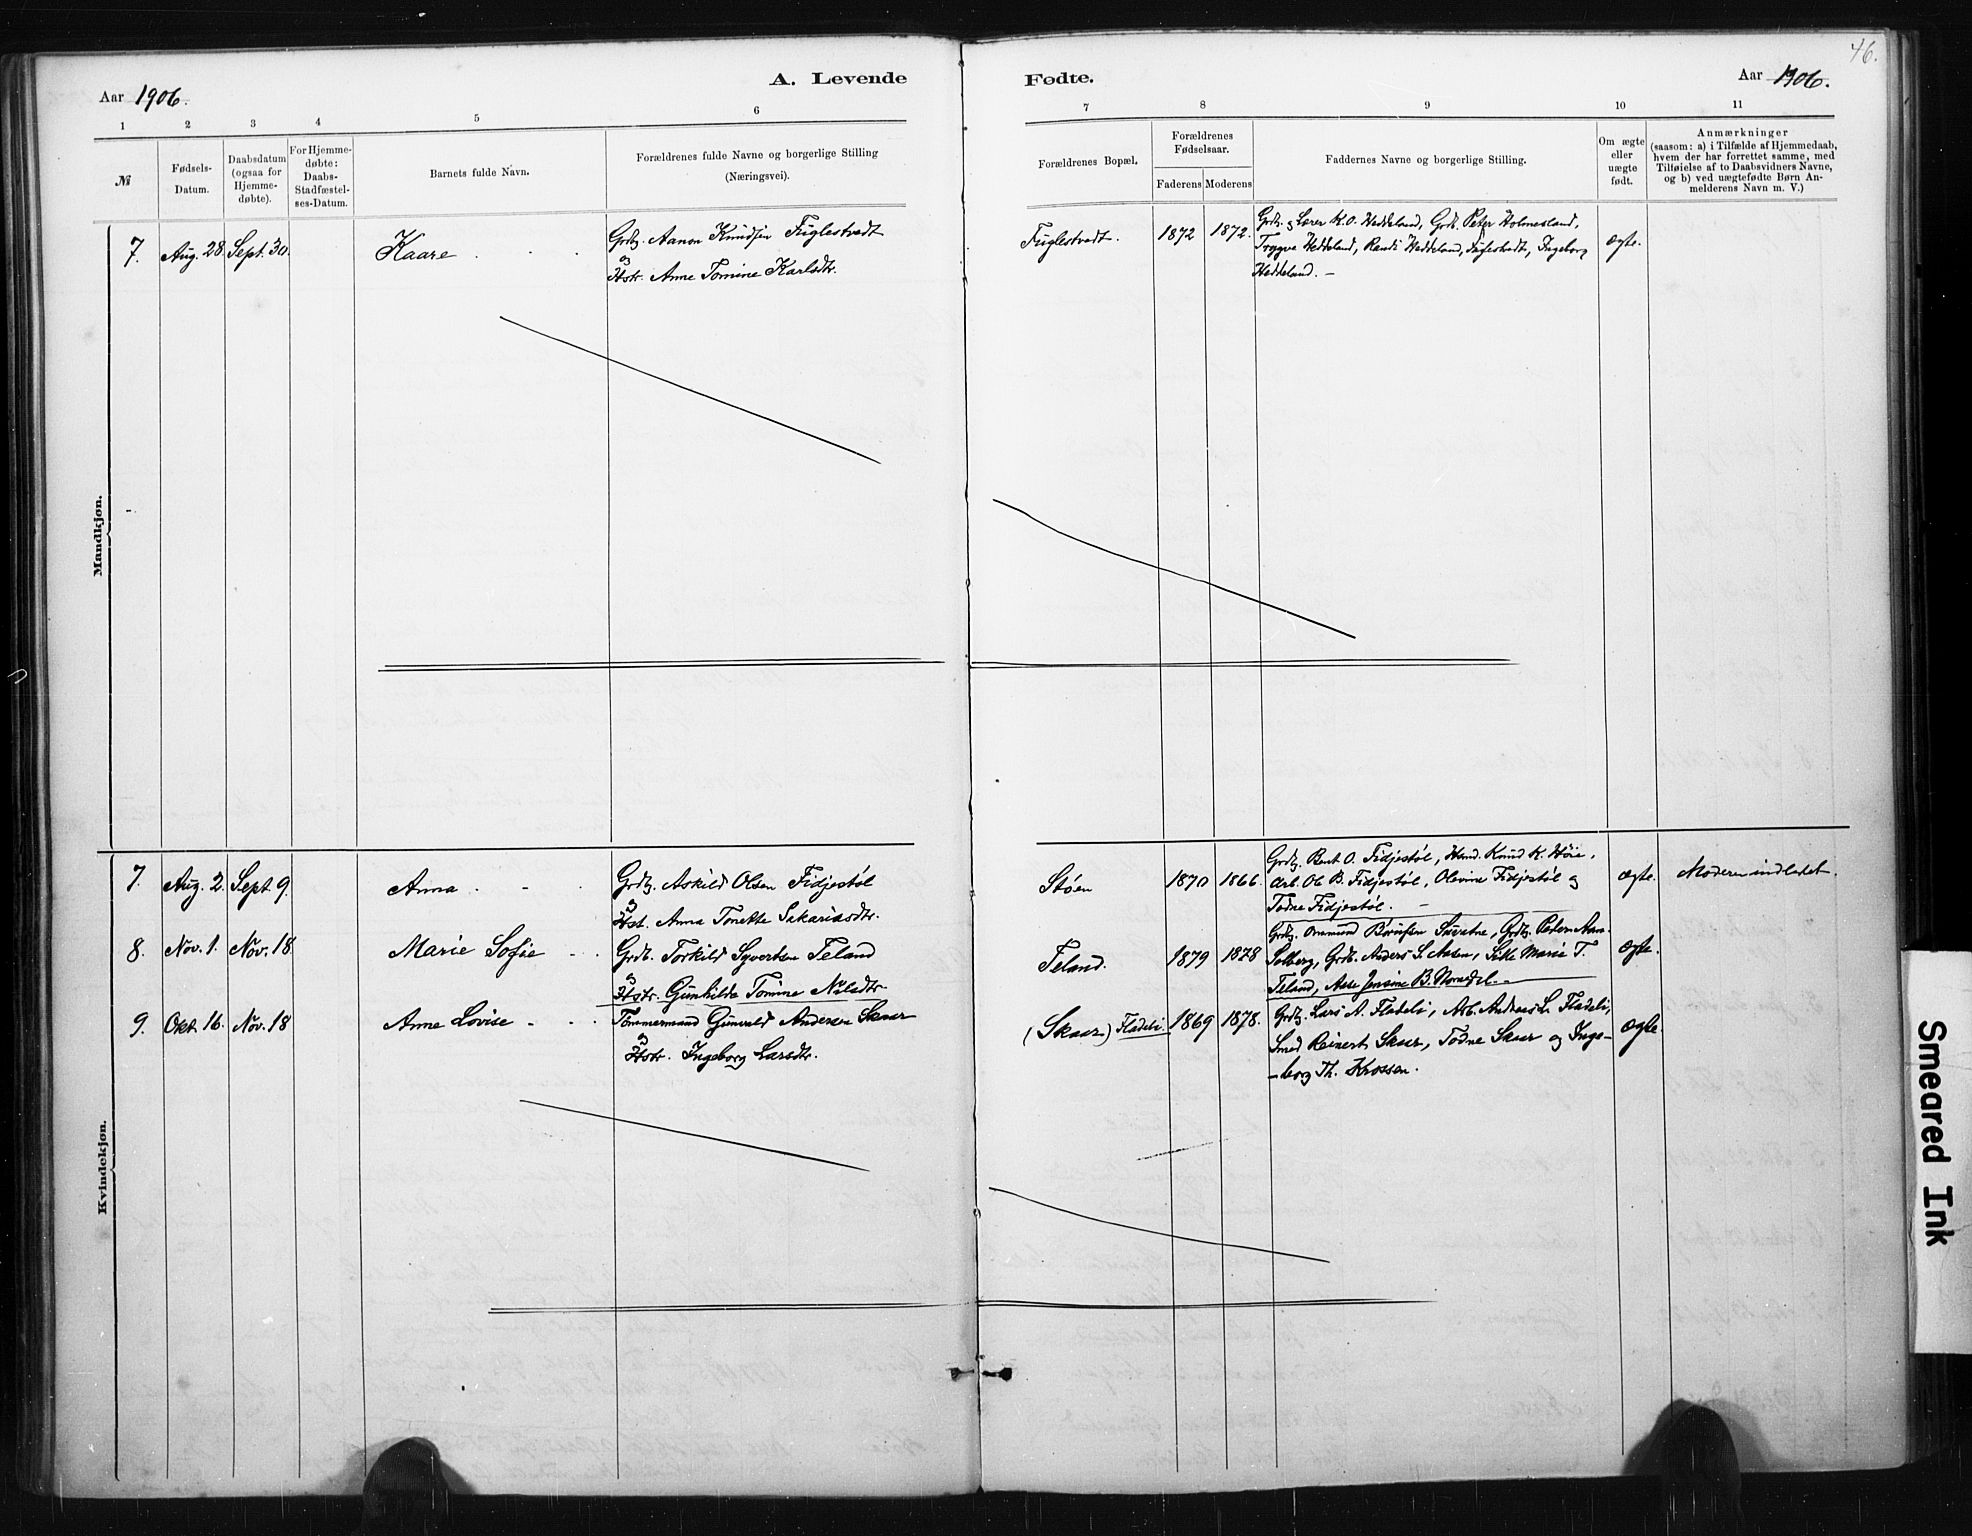 46.
A. Levende Fødte.
Aar 1906.
Aar 1906.
1 2 3 4 5 6 7 8 9 10 11
№
Fødsels-
Datum.
Daabsdatum
(ogsaa for
Hjemme-
døbte).
For Hjemme-
døbte:
Daabs-
Stadfæstel-
ses-Datum.
Barnets fulde Navn.
Forældrenes fulde Navne og borgerlige Stilling
(Næringsvei).
Forældrenes Bopæl.
Forældrenes
Fødselsaar.
Faderens Moderens
Faddernes Navne og borgerlige Stilling.
Om ægte
eller
uægte
født.
Anmærkninger
(saasom: a) i Tilfælde af Hjemmedaab,
hvem der har forrettet samme, med
Tilføielse af to Daabsvidners Navne,
og b) ved uægtefødte Børn An-
melderens Navn m. V.)
Mandkjøn.
7. Aug. 28 Sept. 30. Kaare
Grdb. Aanon Knudsen Fuglestvedt
og
Hstr. Anne Tomine Karlsdtr.
Fuglestvedt. 1872 1872.
Grdb. og Lærer K. O. Heddeland, Grdb. Peter Holmesland,
Trygve Heddeland, Randi Heddeland, Fuglestvedt, Ingeborg
Heddeland. —
ægte.
Kvindekjøn.
7. Aug. 2. Sept. 9. Anna
Grdb. Askild Olsen Fidjestøl
og
Hst. Anna Tonette Sakariasdtr.
Støen 1870 1866.
Grdb. Bent O. Fidjestøl, Hand. Knud K. Høie,
Arb. Ole B. Fidjestøl, Olevine Fidjestøl og
Todne Fidjestøl. —
ægte. Moderen indledet.
8. Nov. 1. Nov. 18 Marie Sofie
Grdb. Torkild Syvertsen Feland
og
Hstr. Gunhilde Tomine Nilsdtr.
Feland. 1879 1878
Solberg, Grdb. Anders S. Aasen, Marie T.
Feland, Aase Jensine B.
ægte.
9. Okt. 16. Nov. 18 Anne Lovise
Tømmermand Gunvald Andersen Skaar
og
Hstr. Ingeborg Larsdtr.
(Skaar) Fladebi. 1869 1878.
Grdb. Lars A. Fladebi, Arb. Andreas L. Fladebi,
Smed Reinert Skaar, Todne Skaar og Inge-
-borg Th. Krossen.
ægte.
Smeared Ink